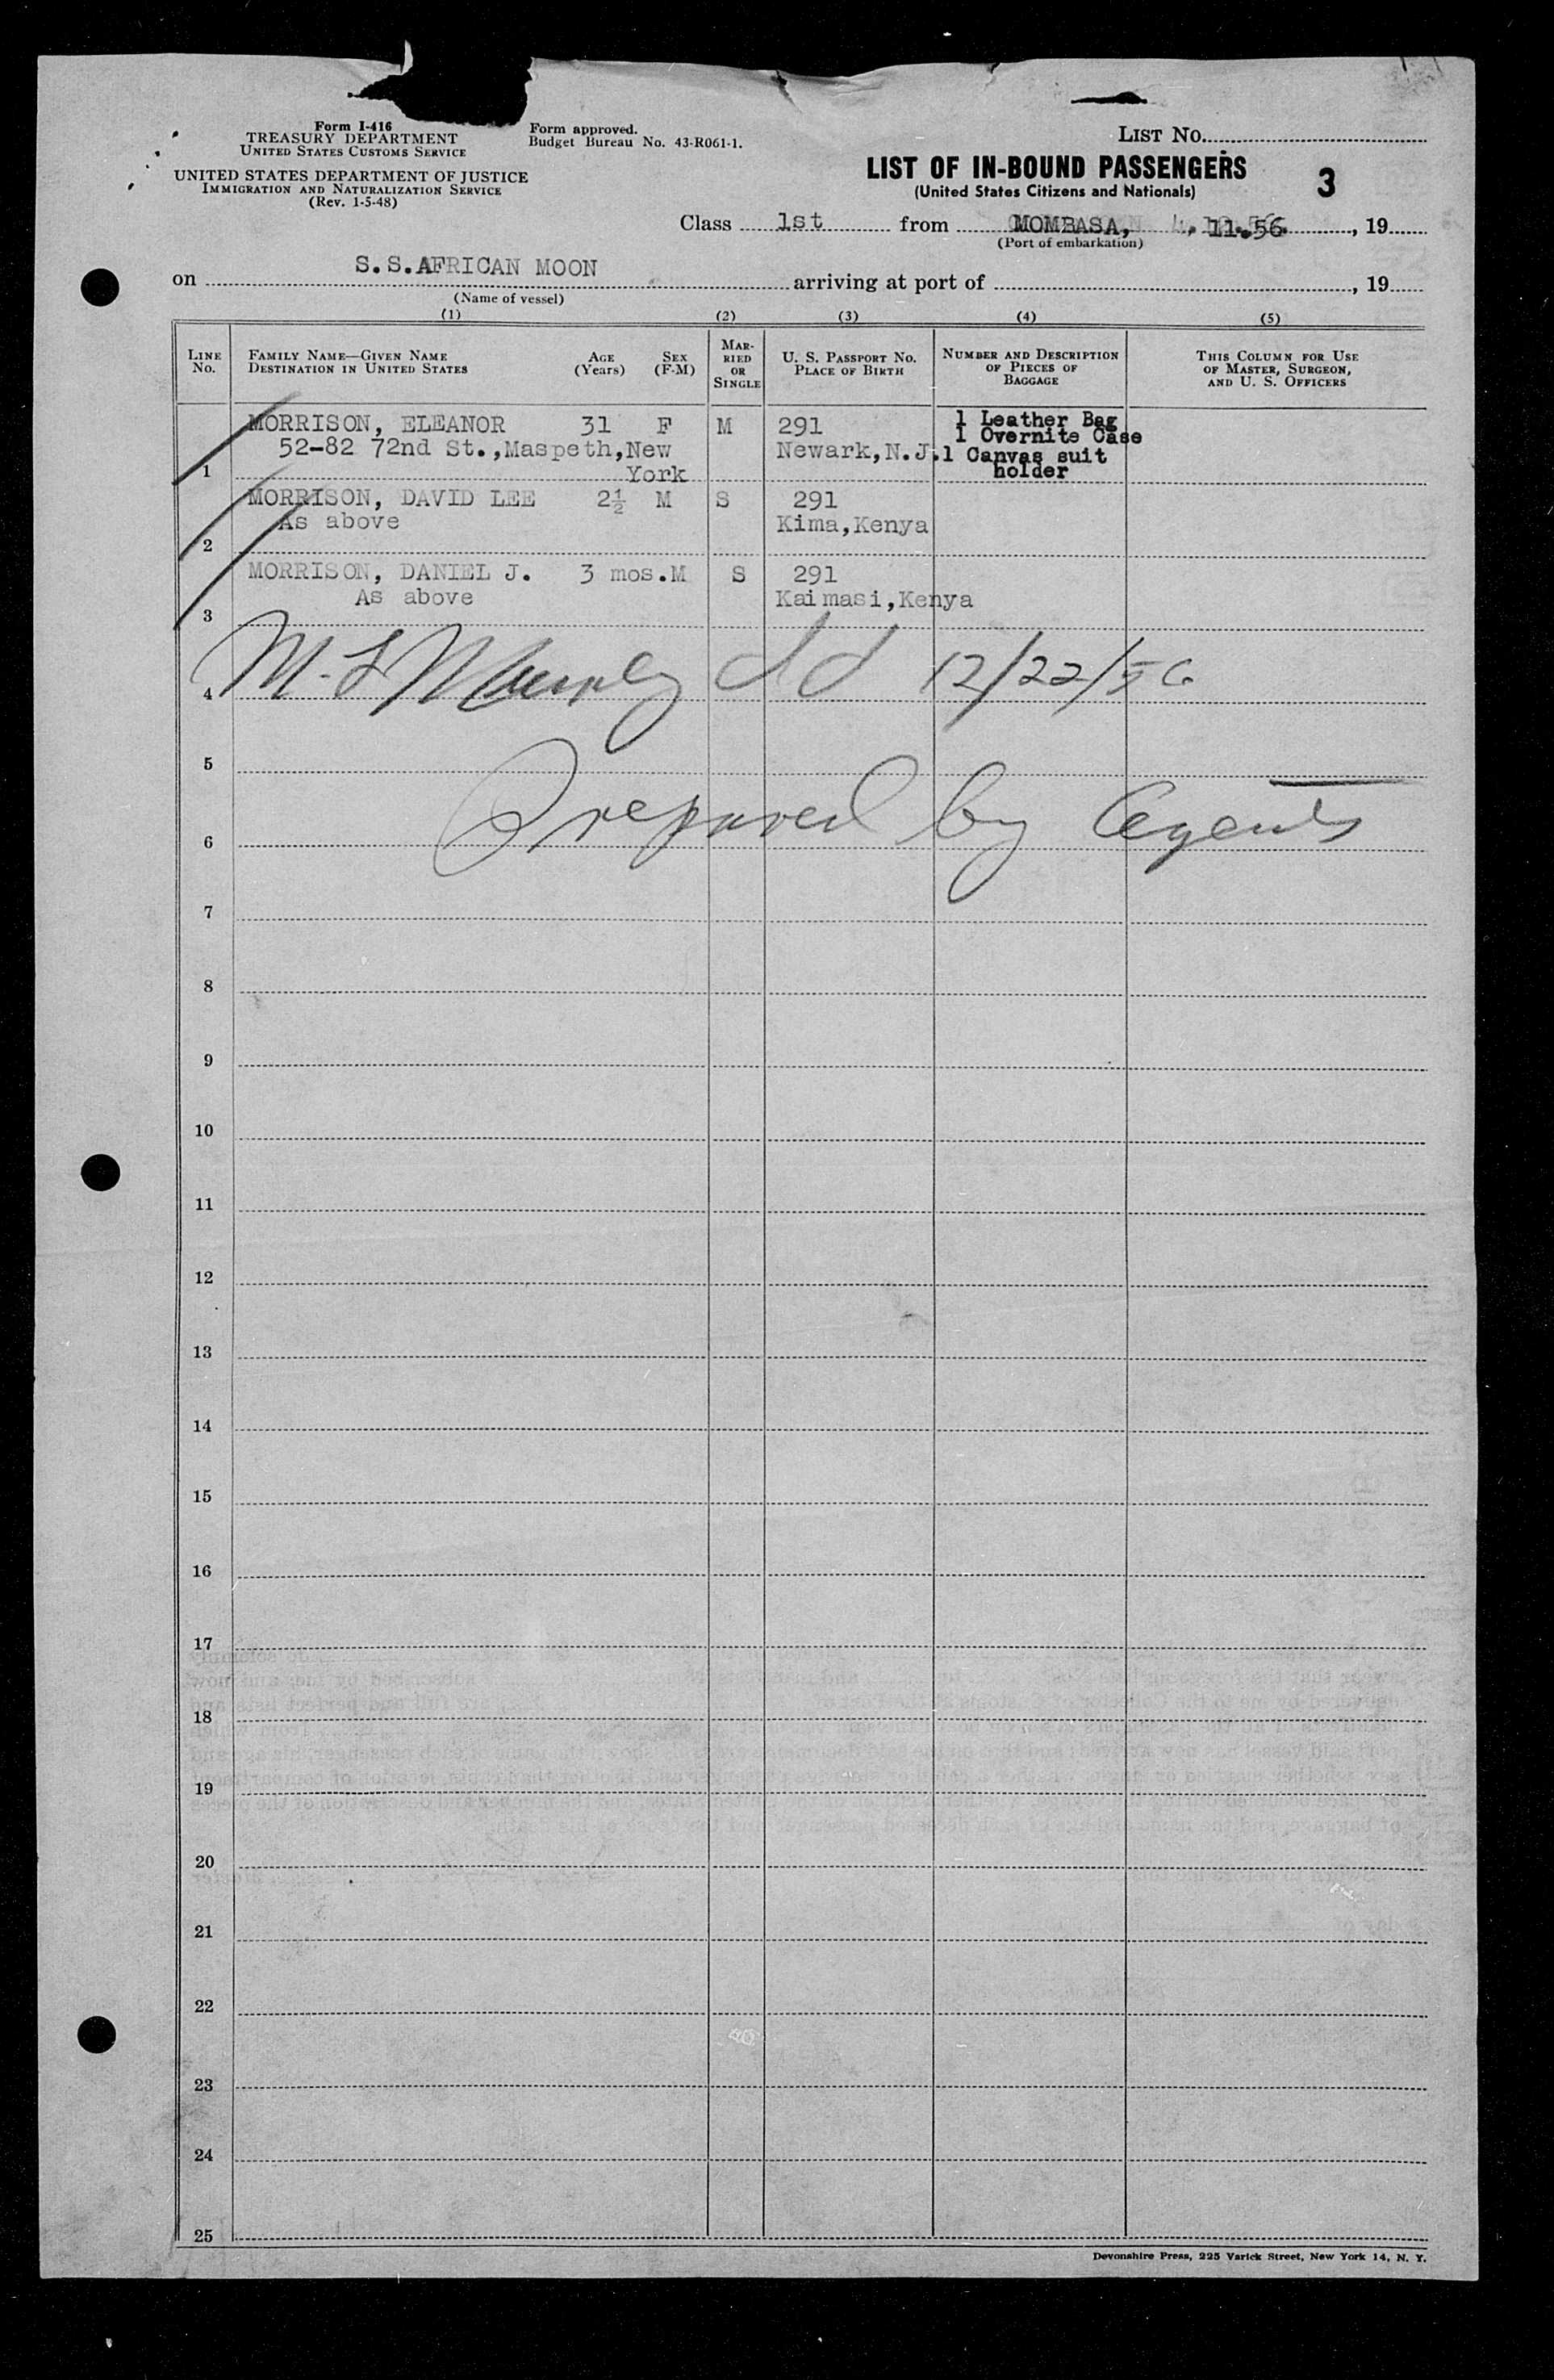 Form I-416
TREASURY DEPARTMENT
UNITED STATES CUSTOMS SERVICE
UNITED STATES DEPARTMENT OF JUSTICE
IMMIGRATION AND NATURALIZATION SERVICE
(Rev. 1-5-48)
Form approved.
Budget Bureau No. 43-R061-1.
LIST No.
LIST OF IN-BOUND PASSENGERS
(United States Citizens and Nationals)
3
Class 1st from MOMBASA, 11.56 , 19
(Port of embarkation)
on S.S.AFRICAN MOON arriving at port of , 19
(Name of vessel)
(1) (2) (3) (4) (5)
LINE No. FAMILY NAME—GIVEN NAME DESTINATION IN UNITED STATES AGE (Years) SEX (F-M) MARRIED OR SINGLE U. S. PASSPORT No. PLACE OF BIRTH NUMBER AND DESCRIPTION OF PIECES OF BAGGAGE THIS COLUMN FOR USE OF MASTER, SURGEON, AND U. S. OFFICERS
MORRISON, ELEANOR 31 F M 291 1 Leather Bag
1 Overnite Case
52-82 72nd St.,Maspeth,New Newark,N.J. 1 Canvas suit
1 York holder
MORRISON, DAVID LEE 2½ M S 291
As above Kima,Kenya
2
MORRISON, DANIEL J. 3 mos. M S 291
As above Kaimasi,Kenya
3
4 12/22/56
5
Prepared by Agents
6
7
8
9
10
11
12
13
14
15
16
17
18
19
20
21
22
23
24
25
Devonshire Press, 225 Varick Street, New York 14, N. Y.